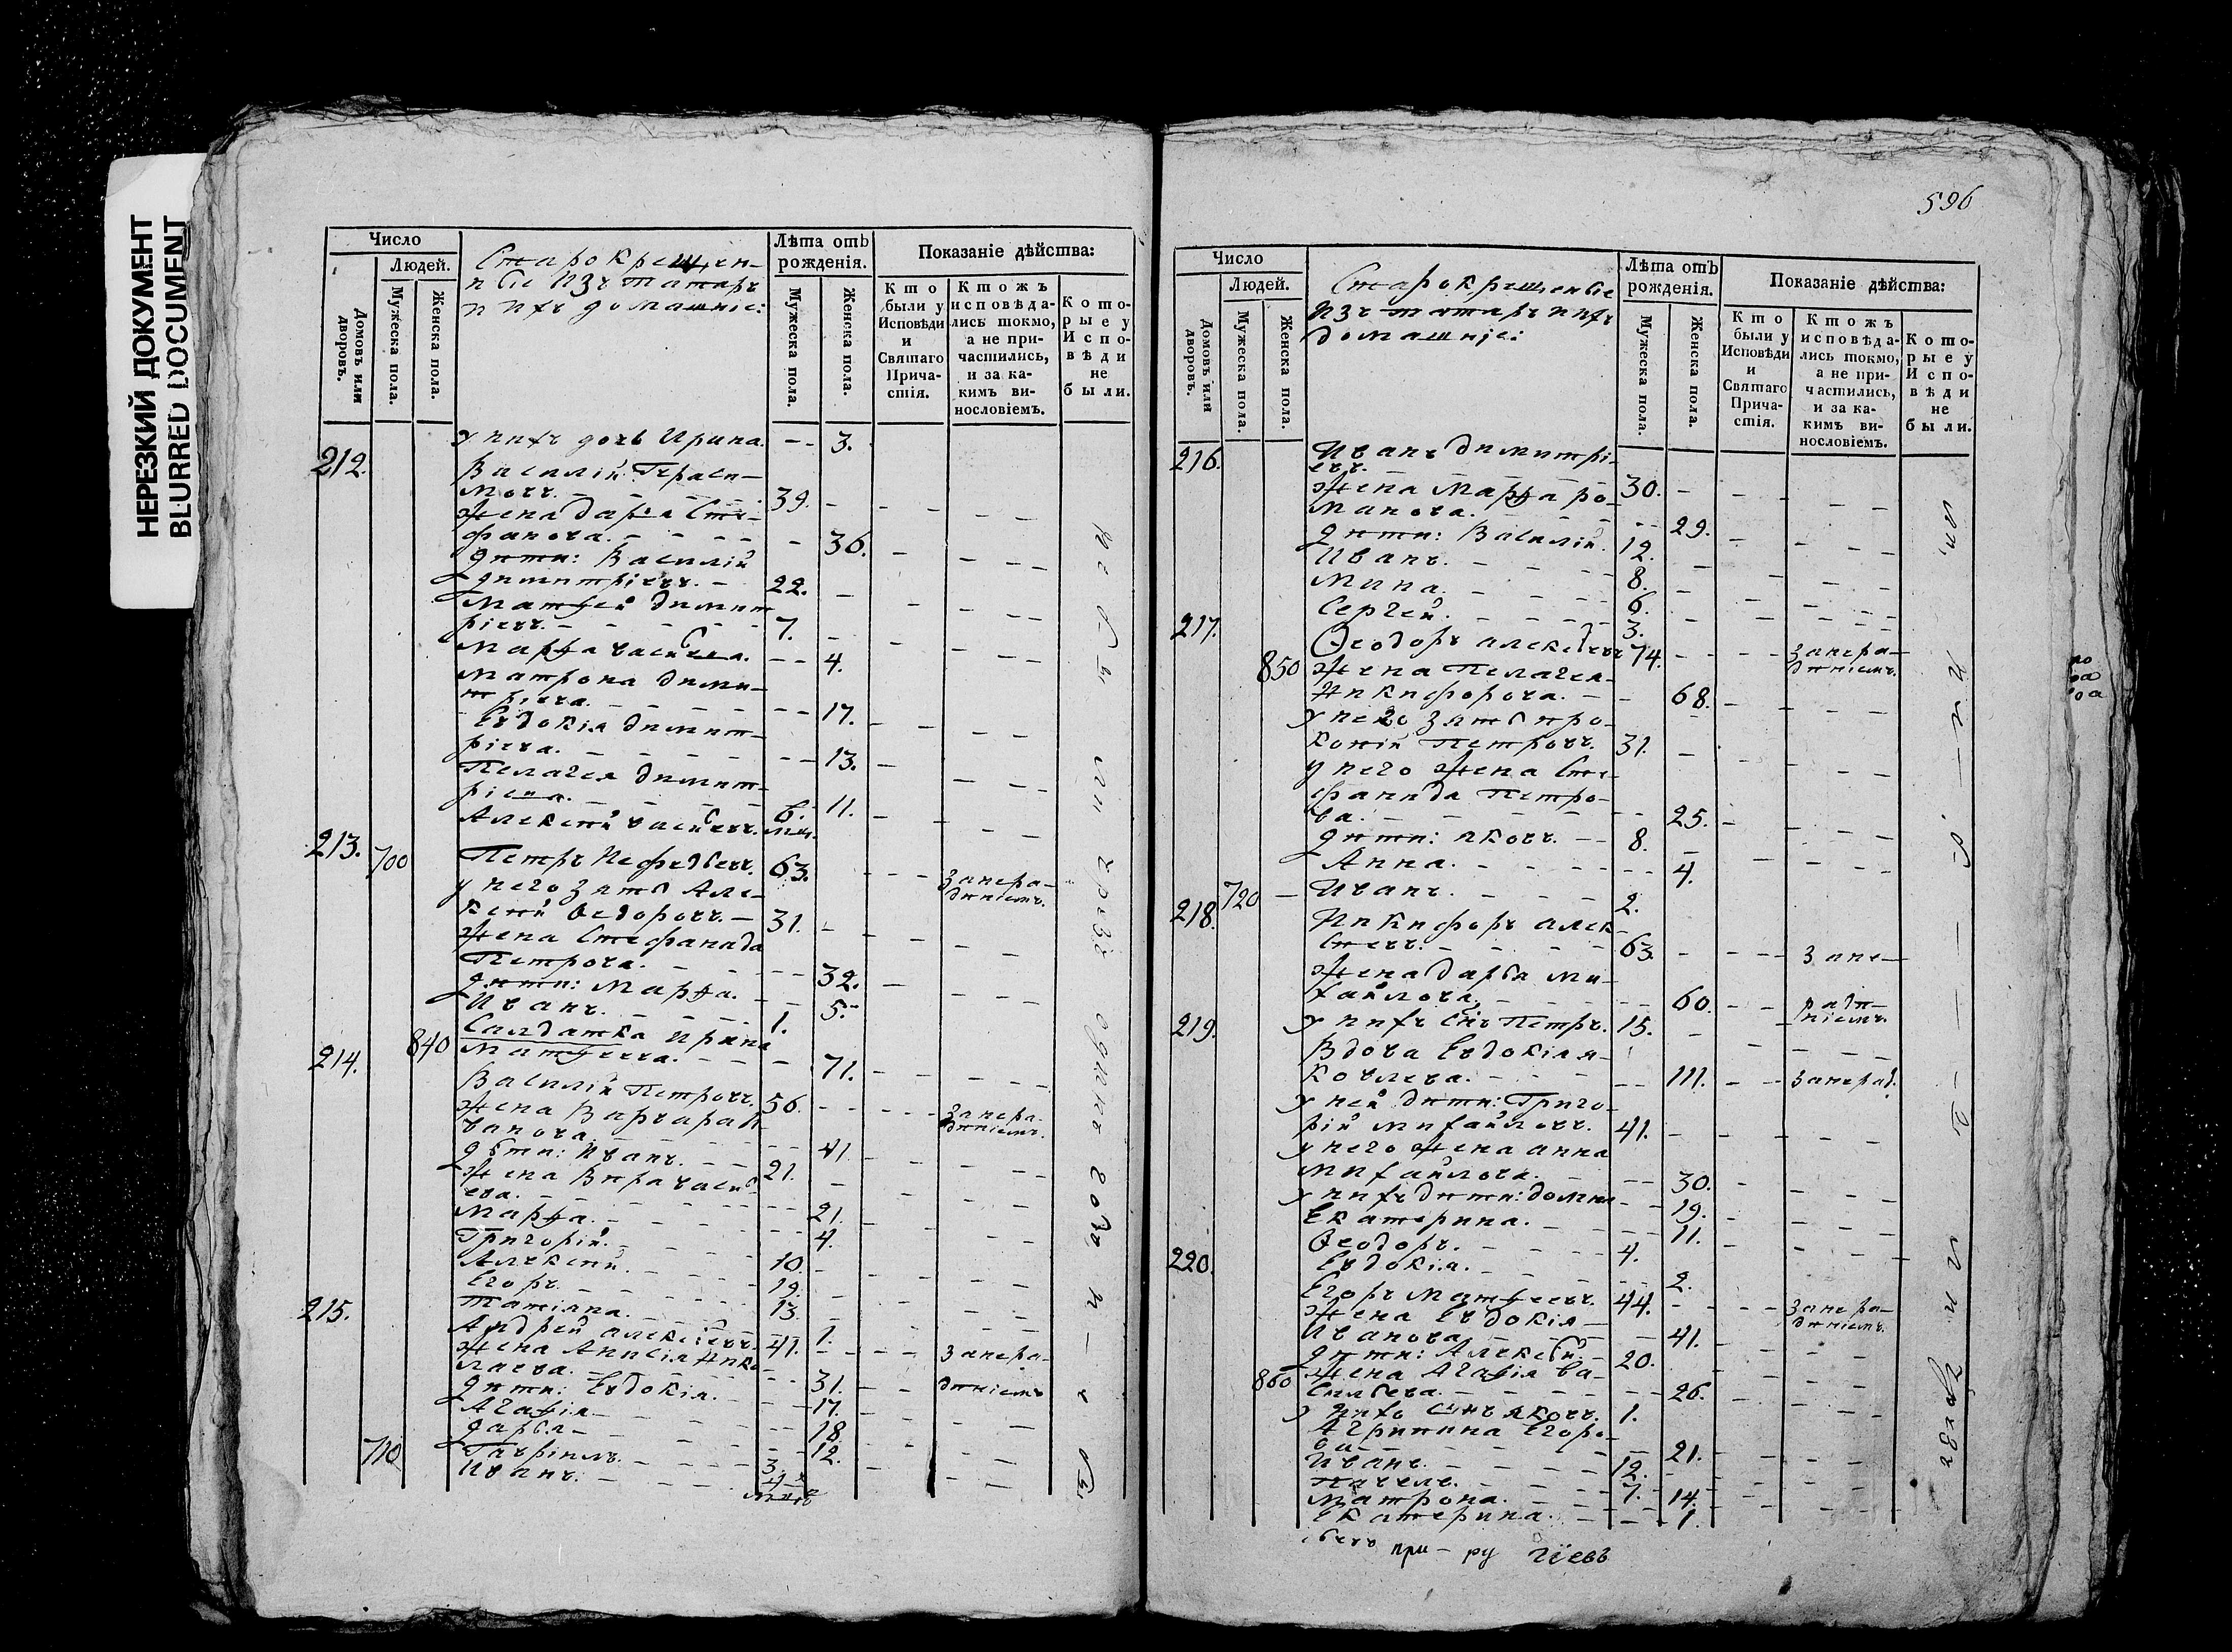 НЕРЕЗКИЙ ДОКУМЕНТ
BLURRED DOCUMENT
Число
Людей.
Домовъ или дворовъ.
Мужеска пола.
Женска пола.
Старокрещен-
ные изъ татаръ
и ихъ домашніе:
Лѣта отъ рожденія.
Мужеска пола.
Женска пола.
Показаніе дѣйства:
Кто были у Исповѣди и Святаго Причастія.
Ктожъ исповѣдались токмо, а не причастились, и за какимъ винословіемъ.
Которые у Исповѣди не были.
у нихъ дочь Ирина. - - 3.
212. Василій Гераси-
мовъ. - - - 39. -
жена Дарья Сте-
фанова. - - - - 36.
дѣти: Василій
Димитріевъ. - 22. -
Матфей Димит
ріевъ. - - - 7. -
Марфа Васильева. - - 4.
Матрона Дими-
тріева. - - - - 17.
Евдокія Димит-
ріева. - - - - 13.
Пелагея Димит-
ріева. - - - 11.
Алексѣй Васильевъ. 6. мц.
213. 700 Петръ Нефедьевъ. 63. - - - занера-
дѣніемъ.
у него зять Але-
ксѣй Ѳедоровъ. - 31. -
жена Стефанида
Петрова. - - - - 32.
дѣти: Марфа. - - 5.
Иванъ. - - - 1.
840 Салдатка Ирина
Матфеева. - - - 71.
214. Василій Петровъ. 56. - - - - занера-
дѣніемъ.
жена Варвара И-
ванова. - - - - 41.
дѣти: Иванъ. - - 21. -
жена Вира Василь-
ева. - - - - 21.
Марфа. - - - - 4.
Григорій. - - - 10. -
Алексѣй. - - - 19. -
Егоръ. - - - 13. -
Татіана. - - - - 1.
215. Андрей Алексѣевъ. 41. - - - - занера-
жена Анисія Нико
лаева. - - - - 31. - - дѣніемъ
дѣти: Евдокія. - - 17.
Агафія - - - - 18.
Дарья - - - - 12.
710 Гавріилъ. - - - 3.
Иванъ. - - - -
596
Число
Людей.
Домовъ или дворовъ.
Мужеска пола.
Женска пола.
Старокрещеные
изъ татаръ и ихъ
домашніе:
Лѣта отъ рожденія.
Мужеска пола.
Женска пола.
Показаніе дѣйства:
Кто были у Исповѣди и Святаго Причастія.
Ктожъ исповѣдались токмо, а не причастились, и за какимъ винословіемъ.
Которые у Исповѣди не были.
216. Иванъ Димитрі-
евъ. - - - 30. -
жена Марфа Ро-
манова. - - - - 29.
дѣти: Василій. 12.
Иванъ. - - - 8.
Мина. - - - 6.
Сергей. - - - 3.
217. Ѳеодоръ Алексѣевъ 74. - - - занера-
дѣніемъ.
850 жена Пелагея
Никифорова. - - 68.
у него зять Про-
копій Петровъ. 31. -
у него жена Сте-
фанида Петро-
ва. - - - - 25.
дѣти: Яковъ. - - 8.
Анна. - - - - 4.
720 - Иванъ. - - - 2.
218. Никифоръ Алек-
сѣевъ. - - - 63. - - - зане-
жена Дарья Ми-
хайлова. - - - - 60. - - радѣ-
ніемъ.
у нихъ сынъ Петръ. 15. -
219. Вдова Евдокія Я-
ковлева. - - - - 111. - - занерад.
у ней дѣти: Григо-
рій Михайловъ. 41. -
у него жена Анна
Михайлова. - - - 30.
у нихъ дѣти: Домна - - 19.
Екатерина. - - - 11.
Ѳеодоръ. - - - 4.
Евдокія. - - - - 2.
220. Егоръ Матфеевъ. 44. - - - - занера-
дѣніемъ.
жена Евдокія
Иванова. - - - 41.
дѣти: Алексѣй. - 20.
860 жена Агафія Ва-
сильева. - - - - 26.
у нихъ сынъ Яковъ. 1.
Агрипина Егоро-
ва - - - - 21.
Иванъ. - - - 12. -
Павелъ. - - - 7.
Матрона. - - - 14.
Екатерина. - - - 1.
при- ру гіевъ